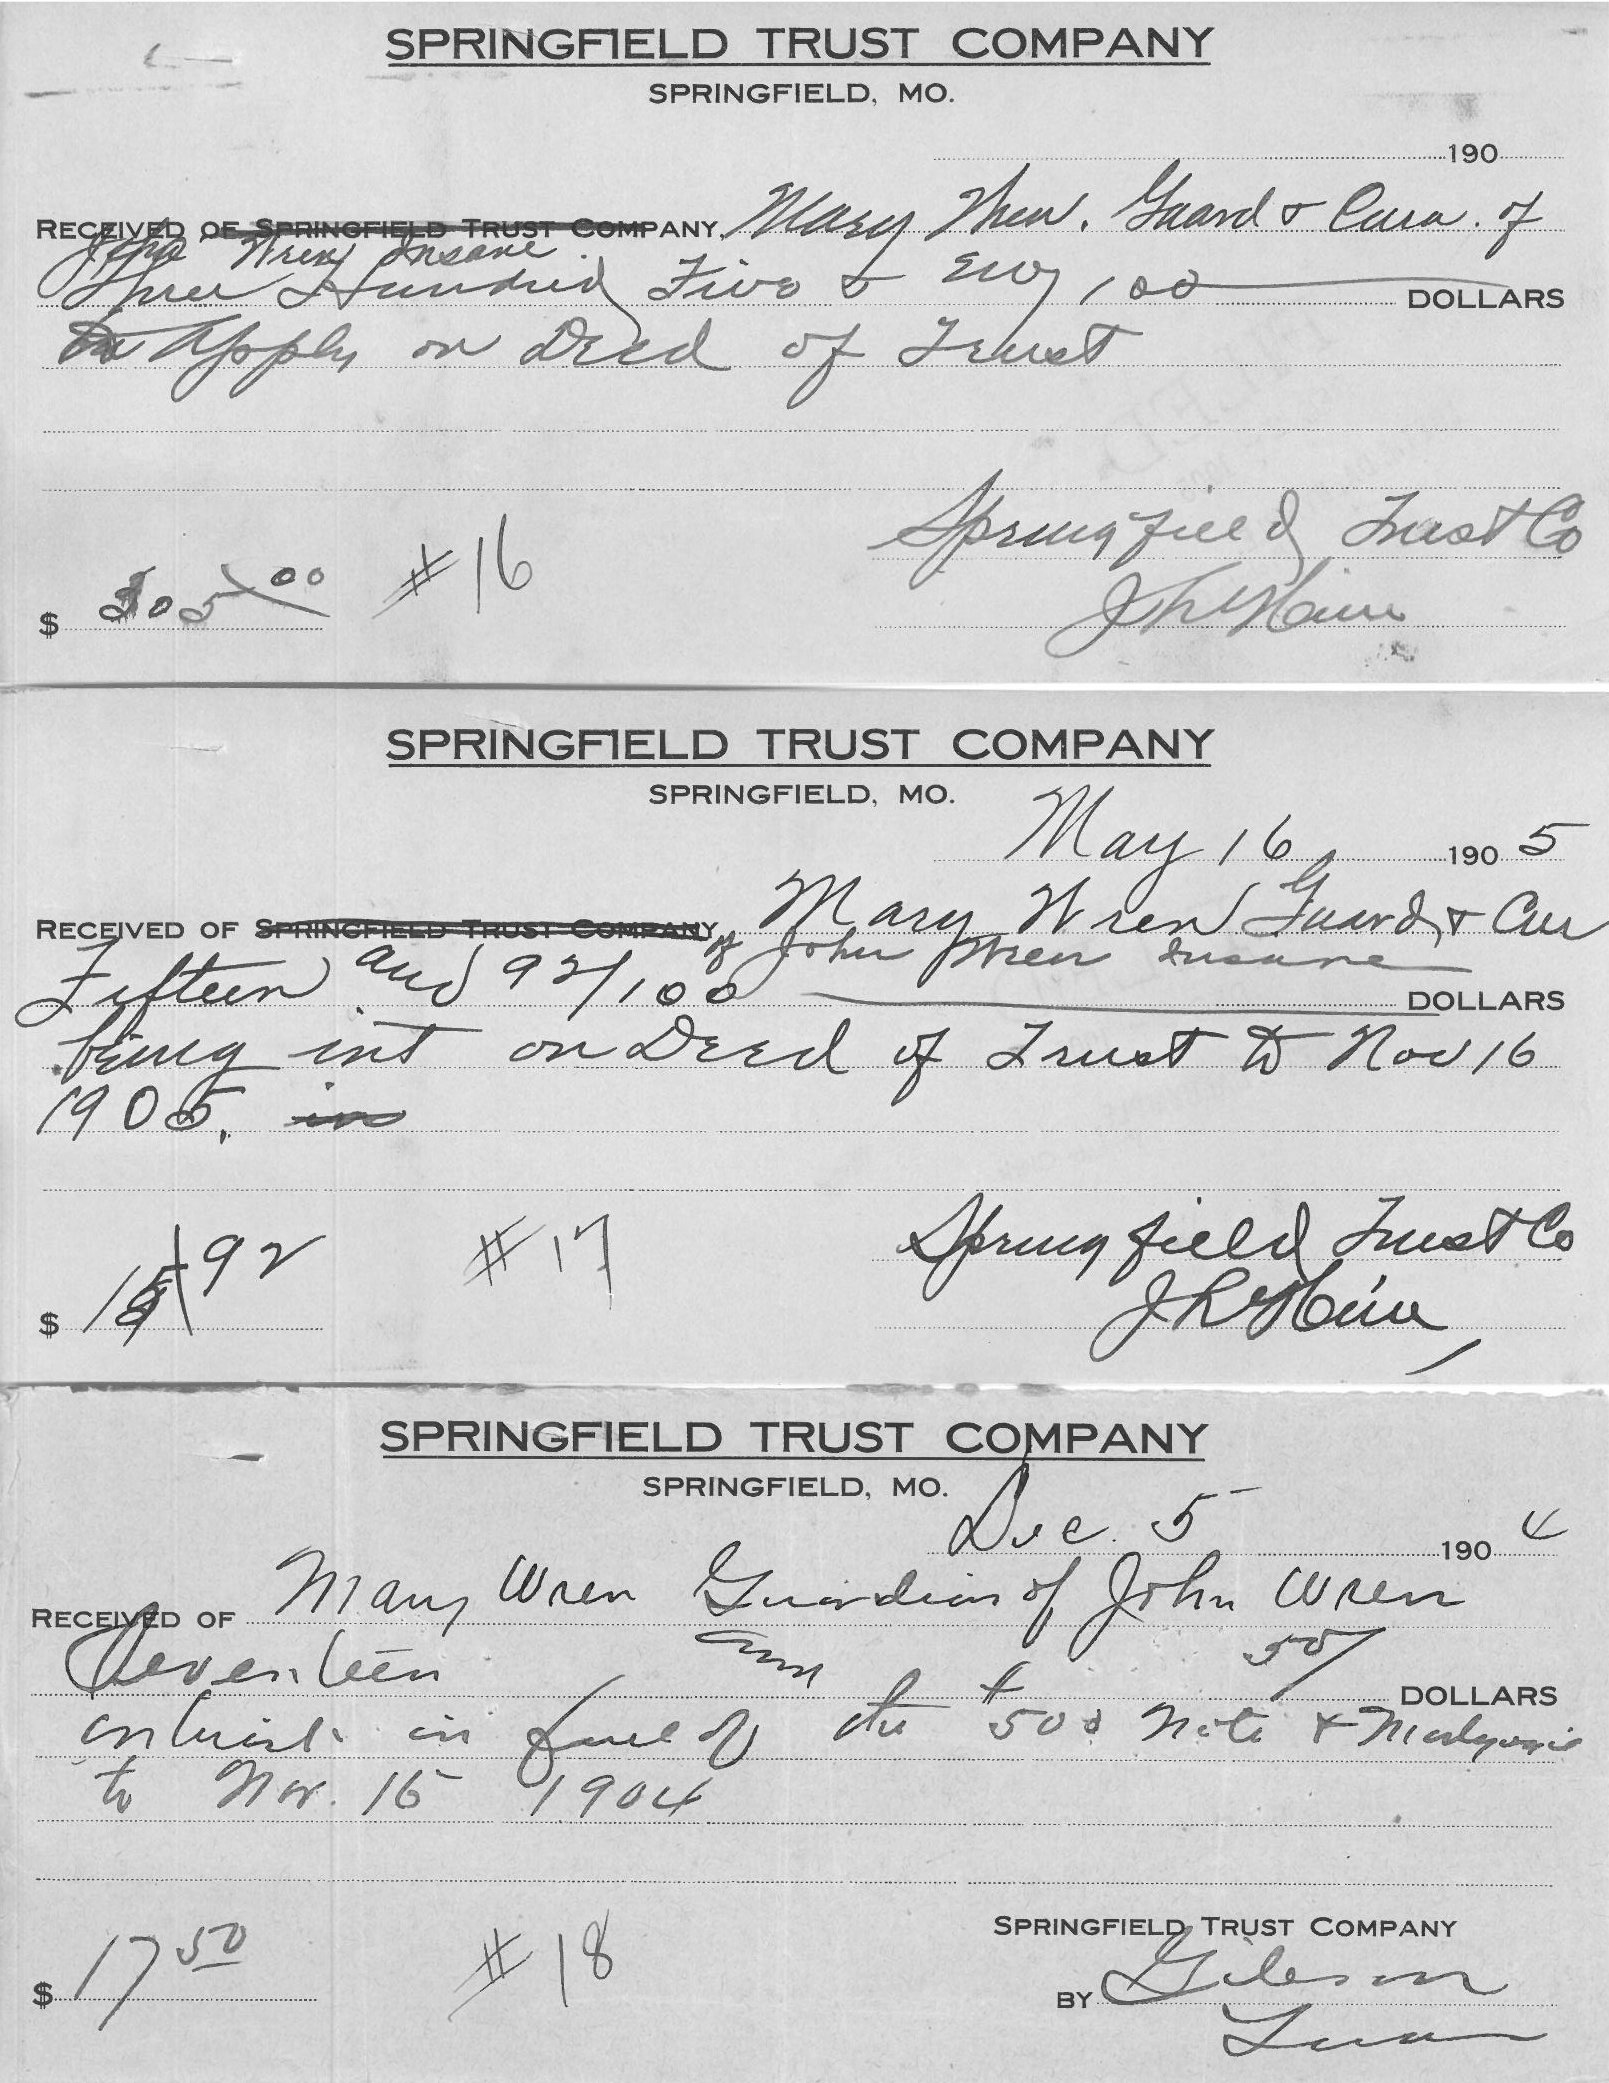 SPRINGFIELD TRUST COMPANY
SPRINGFIELD, MO.
190
RECEIVED OF SPRINGFIELD TRUST COMPANY, Mary Wren. Guard & Cura. of
John Wren Insane.
Three Hundred Five & no/100 DOLLARS
Apply on Deed of Trust
Springfield Trust Co
$ 305 00 # 16
SPRINGFIELD TRUST COMPANY
SPRINGFIELD, MO.
May 16 1905
RECEIVED OF SPRINGFIELD TRUST COMPANY, Mary Wren Guard & Cur
of John Wren Insane
Fifteen and 92/100 DOLLARS
being int on Deed of Trust to Nov 16
1905. in
Springfield Trust Co
$ 15 92 # 17
SPRINGFIELD TRUST COMPANY
SPRINGFIELD, MO.
Dec. 5 1904
RECEIVED OF Mary Wren Guardian of John Wren
Seventeen and 50/ DOLLARS
interest in full of the $500 Note &
to Nov. 15 1904
SPRINGFIELD TRUST COMPANY
$ 17 50 # 18
BY Gibson